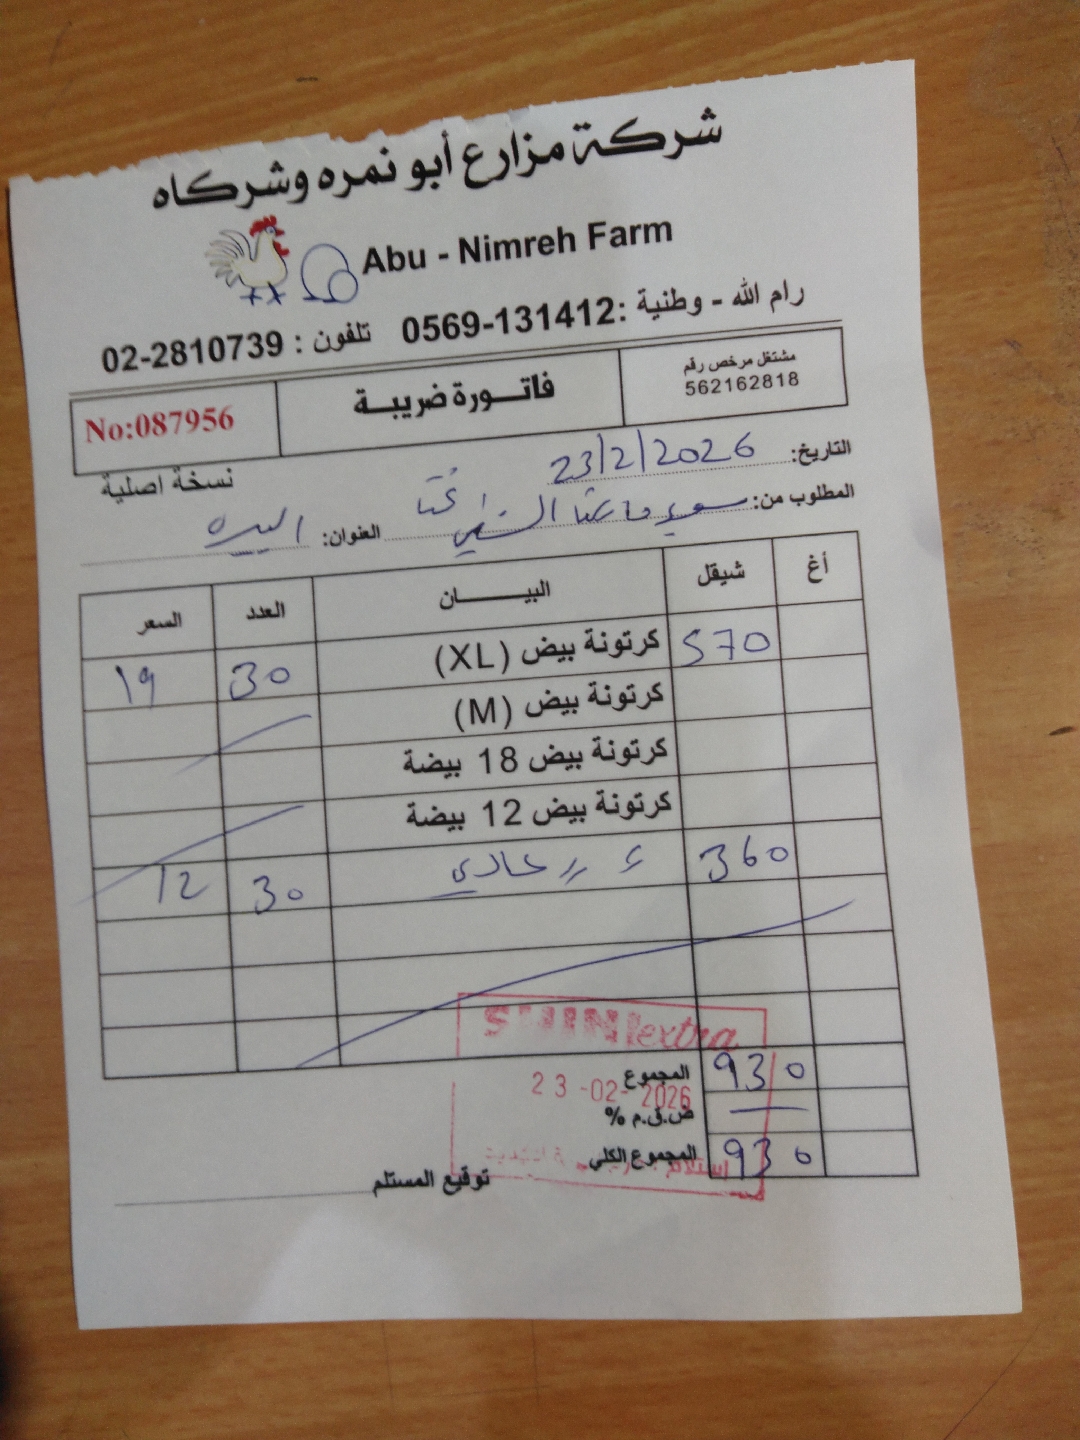 شركة مزارع أبو نمره وشركاه
Abu - Nimreh Farm
رام الله - وطنية : 0569-131412 تلفون : 02-2810739
مشتغل مرخص رقم
562162818
فاتورة ضريبة
No:087956
نسخة اصلية
التاريخ: 23/2/2026
المطلوب من: العنوان: البيره
أغ شيقل البيان العدد السعر
570 كرتونة بيض (XL) 30 19
كرتونة بيض (M)
كرتونة بيض 18 بيضة
كرتونة بيض 12 بيضة
360 عادي 30 12
extra
23-02-2026
المجموع 930
ض.ق.م %
المجموع الكلي 930
توقيع المستلم